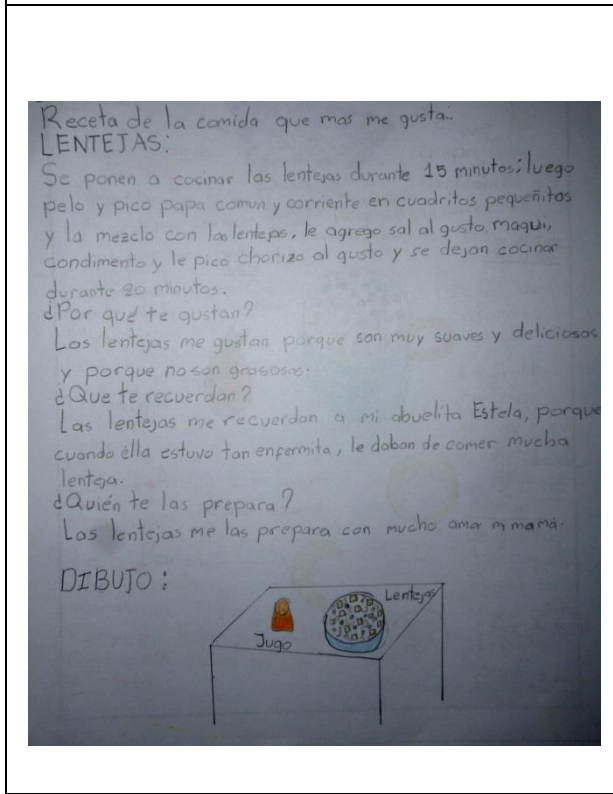 Receta de la comida que mas me gusta..
LENTEJAS:
Se ponen a cocinar las lentejas durante 15 minutos; luego
pelo y pico papa comun y corriente en cuadritos pequeñitos
y la mezclo con las lentejas, le agrego sal al gusto, maqui,
condimento y le pico chorizo al gusto y se dejan cocinar
durante 20 minutos.
¿Por qué te gustan?
Las lentejas me gustan porque son muy suaves y deliciosas
y porque no son grasosas.
¿Que te recuerdan?
Las lentejas me recuerdan a mi abuelita Estela, porque
cuando élla estuvo tan enfermita, le daban de comer mucha
lenteja.
¿Quién te las prepara?
Las lentejas me las prepara con mucho amor m mamá.
DIBUJO:
Lentejas
Jugo